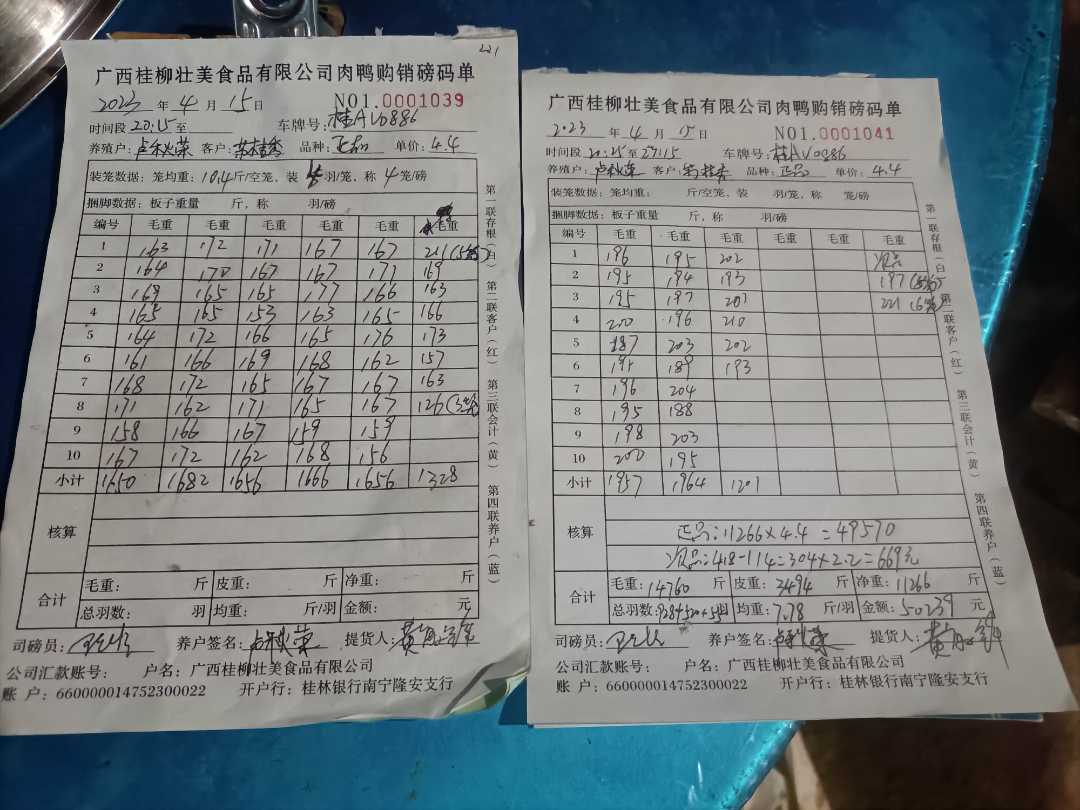 221
广西桂柳壮美食品有限公司肉鸭购销磅码单
2023 年 4 月 15 日 NO1.0001039
时间段 20:15 至 车牌号: 桂AV0886
养殖户: 客户: 品种: 正品 单价: 4.4
装笼数据: 笼均重: 10.4 斤/空笼, 装 羽/笼, 称 4 笼/磅
捆脚数据: 板子重量 斤, 称 羽/磅
编号 毛重 毛重 毛重 毛重 毛重 毛重
1 163 172 171 167 167 211
2 164 170 167 167 171 169
3 169 165 165 177 166 163
4 165 165 153 163 165 166
5 164 172 166 165 176 173
6 161 166 169 168 162 157
7 168 172 165 167 167 163
8 171 162 171 165 167 126
9 158 166 167 159 159
10 167 172 162 168 156
小计 1650 1682 1656 1666 1656 1328
核算
合计 毛重: 斤 皮重: 斤 净重: 斤
总羽数: 羽 均重: 斤/羽 金额: 元
司磅员: 养户签名: 提货人:
公司汇款账号: 户名: 广西桂柳壮美食品有限公司
账 户: 660000014752300022 开户行: 桂林银行南宁隆安支行
第一联存根(白) 第二联客户(红) 第三联会计(黄) 第四联养户(蓝)
广西桂柳壮美食品有限公司肉鸭购销磅码单
2023 年 4 月 15 日 NO1.0001041
时间段 20:25 至 21:15 车牌号: 桂AV0886
养殖户: 客户: 品种: 正品 单价: 4.4
装笼数据: 笼均重: 斤/空笼, 装 羽/笼, 称 笼/磅
捆脚数据: 板子重量 斤, 称 羽/磅
编号 毛重 毛重 毛重 毛重 毛重 毛重
1 196 195 202 次品
2 195 194 193 197
3 195 197 201 221
4 200 196 210
5 187 203 202
6 195 189 193
7 196 204
8 195 188
9 198 203
10 200 195
小计 1957 1964 1201
核算 正品:11266×4.4=49570
次品:418-114=304×2.2=669元
合计 毛重: 14760 斤 皮重: 3494 斤 净重: 11266 斤
总羽数: 羽 均重: 7.78 斤/羽 金额: 50239 元
司磅员: 养户签名: 提货人:
公司汇款账号: 户名: 广西桂柳壮美食品有限公司
账 户: 660000014752300022 开户行: 桂林银行南宁隆安支行
第一联存根(白) 第二联客户(红) 第三联会计(黄) 第四联养户(蓝)